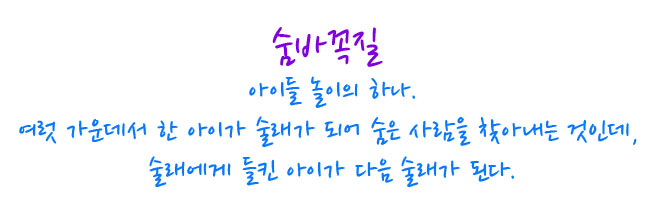 숨바꼭질
아이들 놀이의 하나.
여럿 가운데서 한 아이가 술래가 되어 숨은 사람을 찾아내는 것인데,
술래에게 들킨 아이가 다음 술래가 된다.